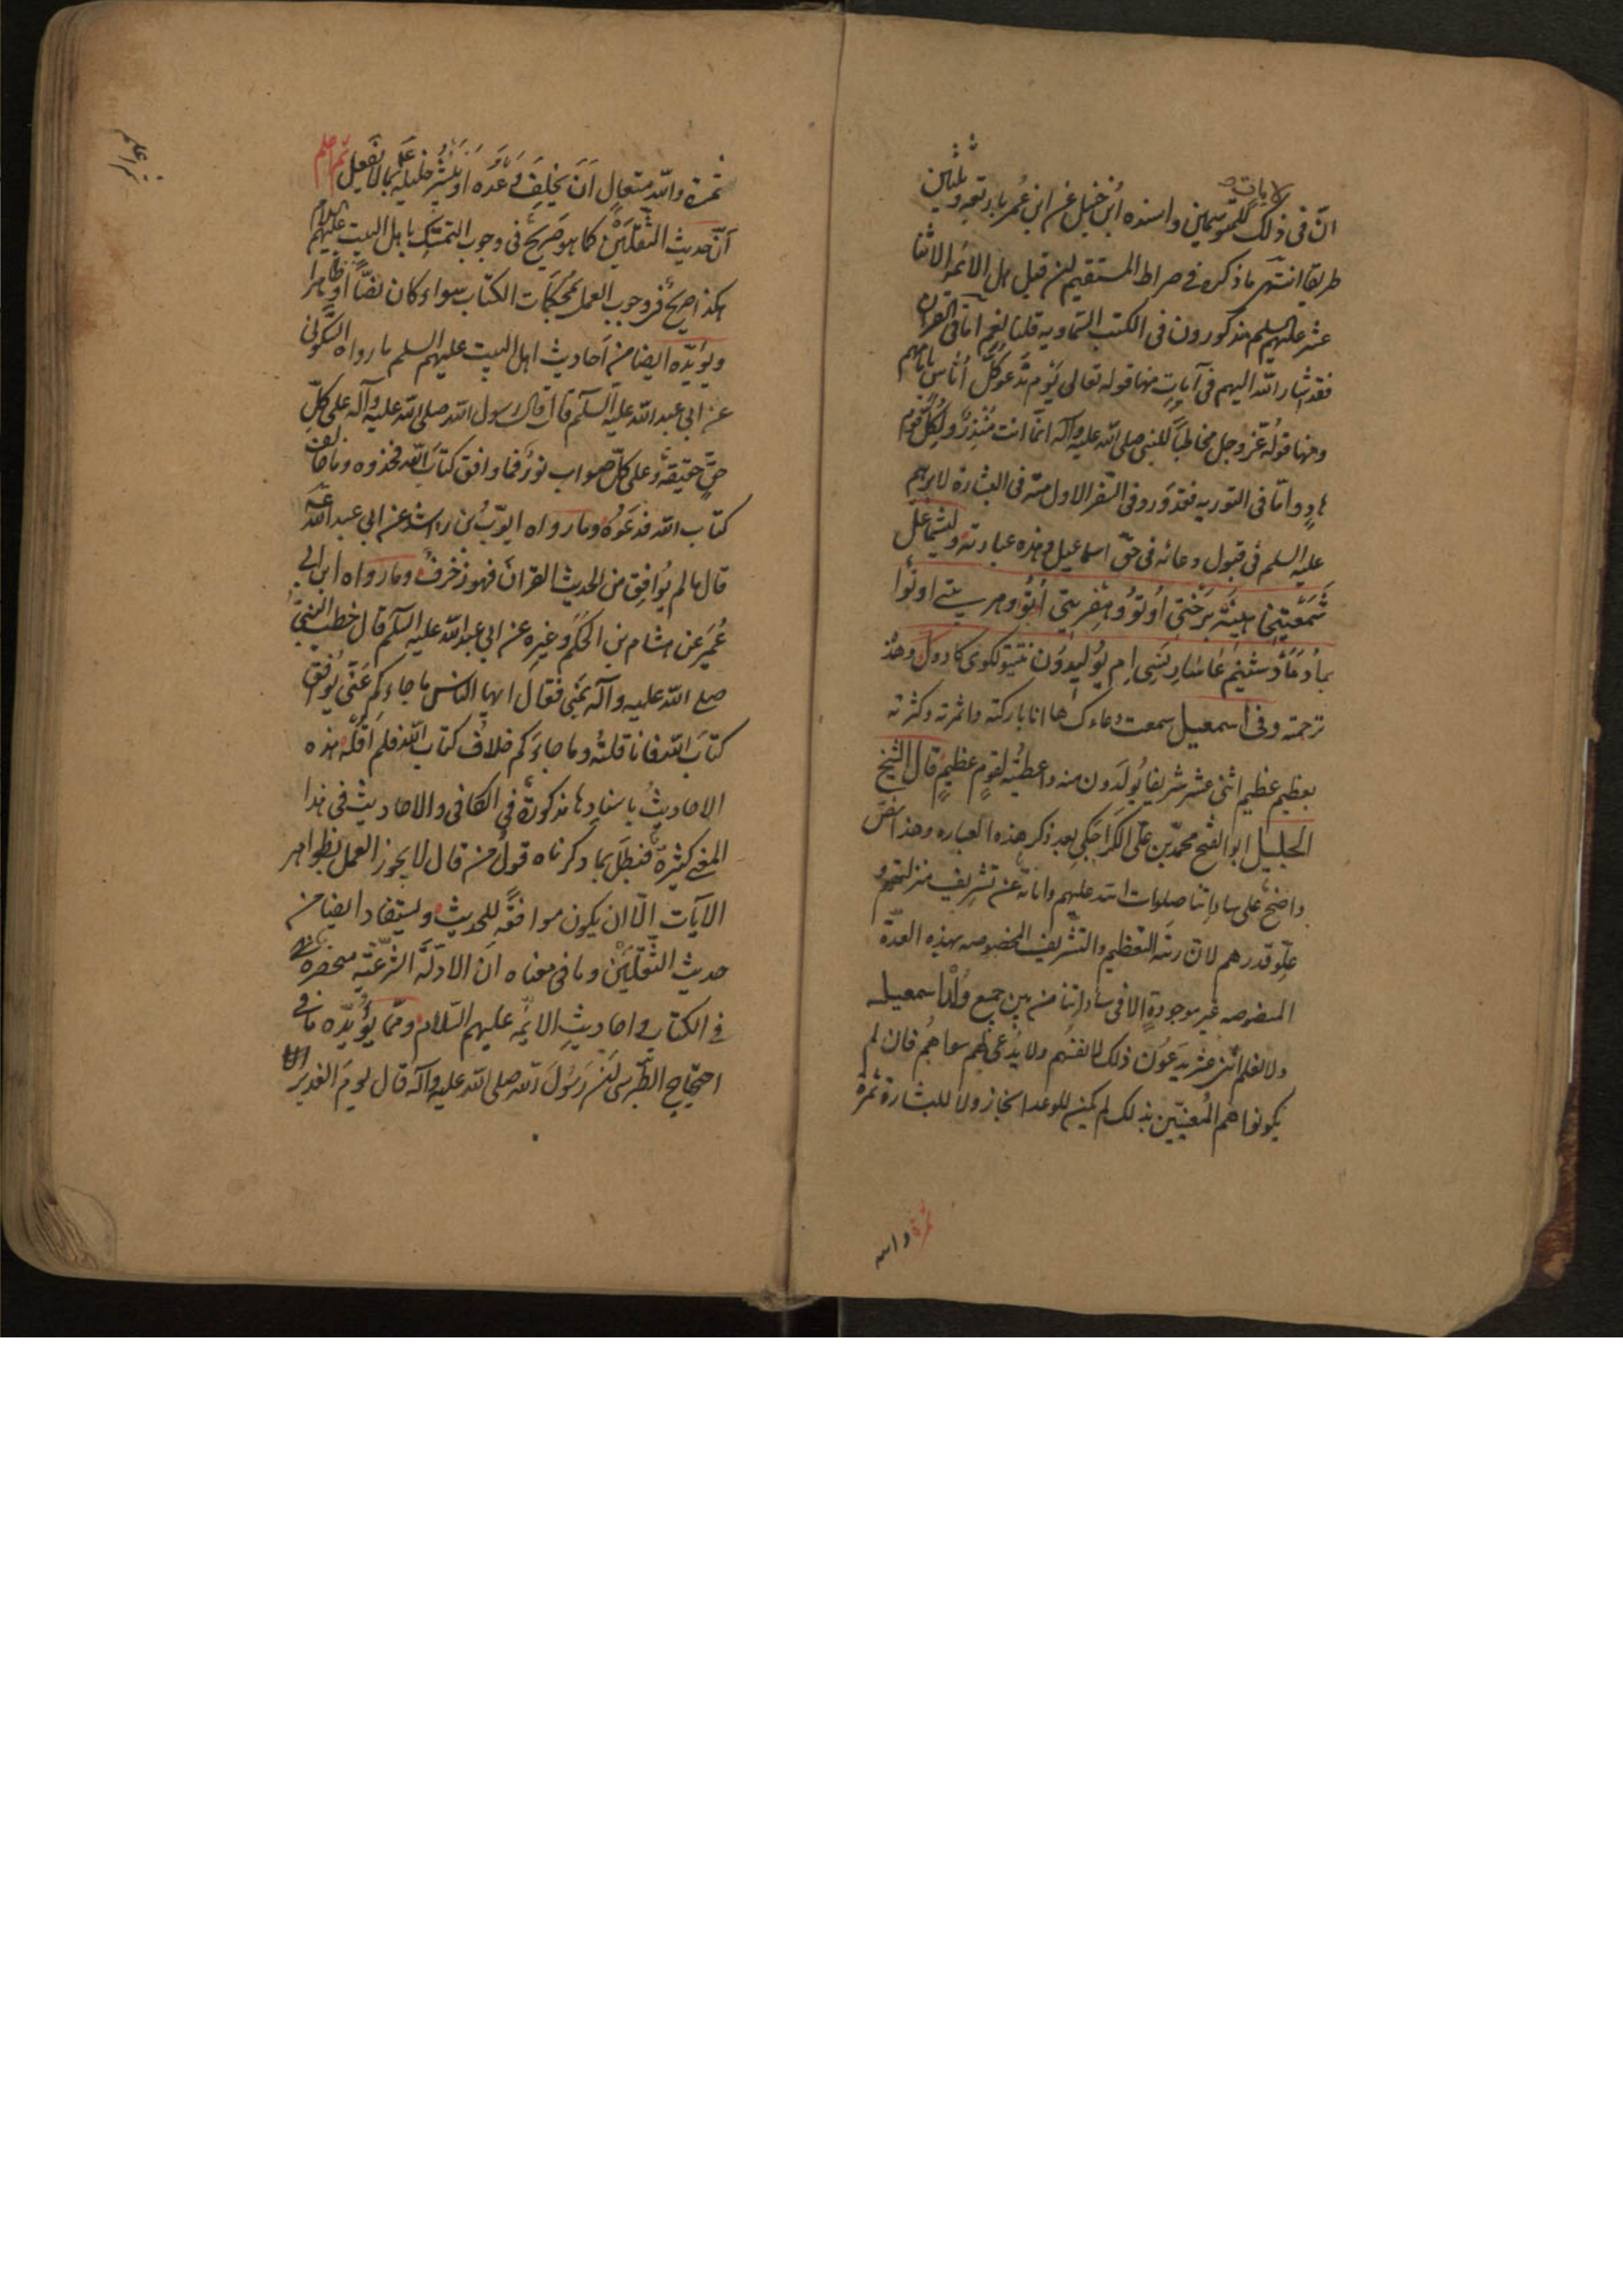 انّ فى ذلك لايات للمتوسمين واسنده ابن حنبل عن ابن عمر باربعة وثلثين
طريقا انتهى ما ذكره فى صراط المستقيم لمن قيل هل الائمه الاثنا
عشر عليهم السلم مذكورون فى الكتب السّماويه قلنا نعم امّا فى القران
فقد اشار اللّه اليهم فى آيات منها قوله تعالى يَوْم نَدْعو كلّ أُناسٍ بامامهم
ومنها قولُه عزّ وجل مخاطباً للنبى صلى اللّه عليه وآله انّما انت مُنْذِرٌ ولِكُلّ قَومٍ
هادٍ وامّا فى التوريه فقد وَرد فى السّفر الاول منه فى البشارة لابرهيم
عليه السلم فى قبول دعائه فى حقّ اسماعيل وهذه عبارته وليشماعل
شَمَعْتِيخا هِينَه بَرَختى اُوتوُ وهِفريتى اُتوُ وهربيتى اوتُوا
بماُد مَأَد شنيم عاسَار نسى ام يوُليدوَن نتيتو لكوى كادول وهذ
ترجمته وفى اسمعيل سمعت دعاءك ها انا باركته واثمرته وكثرته
بعظيم عظيم اثنى عشر شريفا يُولَدون منه واعطيتُه لقومٍ عظيمٍ قال الشيخ
الجليل ابو الفتح محمّد بن على الكَراجَكى بعد ذكر هذه العباره وهذا نصّ
واضح على ساداتنا صلوات الله عليهم وابانَة عن تشريف منزلتهم و
علّو قدرهم لانّ رتبَه التعظيم والتشريف المخصوصه بهذه العدّة
المنصوصه غير موجودةٍ الا فى ساداتنا من بين جميع وُلْد اسمعيل
ولا نعلم اثنى عشر يَدعُون ذلك لانفسُهم ولا يُدعى لهم سواهُم فان لم
يكونوا هم المُعنيّين بذلك لم يكن للوعد انجاز ولا للبشارة ثمرة
ثمرة والله
ثمرة واللّه متعالٍ اَنْ يُخلِفَ وَعْدَه او يُبَشِّر خليله بما لا يَفعل ثم اعلم
اَنّ حديث الثقلَين كما هو صَريح فى وجوب التمسّك باهل البيت عليهم السلام
هكذا صريحٌ فى وجوب العمل بمُحكَمات الكتاب سواء كان نصّاً او ظاهرا
ويُؤيّده ايضا من اَحاديث اهل البيت عليهم السلم ما رواه السَّكونى
عن ابى عبد اللّه عليه السّلم قال قال رسول اللّه صلى اللّه عليه وآله على كلّ
حقٍّ حقيقة وعلى كلّ صواب نورٌ فما وافق كتابَ اللّه فخذوه وما خالف
كتاب اللّه فدَعُوه وما رواه ايوّب بن راشد عن ابى عبد اللّه ع
قال ما لم يُوافِق من الحديث القران فهو زُخرفٌ وما رواه ابن ابى
عُمَير عن هشام بن الحكَم وغيره عن ابى عبد اللّه عليه السّلم قال خطب النبىّ
صلى اللّه عليه وآله بمنى فقال ايها الناس ما جاءكم عَنّى يُوافق
كتابَ اللّه فانا قلتُه وما جاءَكم خلافُ كتاب اللّه فلم اَقُله هذه
الاحاديثُ باسنادها مذكورة فى الكافى والاحاديث فى هذا
المعنى كثيرة فبَطل بما ذكرناه قولُ من قال لا يجوز العمل بظواهر
الآيات الّا ان يكون موافقةً للحديث ويستفاد ايضا من
حديث الثقلَيْن وما فى معناه ان الادلّة الشّرعيّة منحصرة
فى الكتاب واحاديثِ الائمّه عليهم السّلام وممّا يُؤيّده ما فى
احتجاج الطّبرسى لن رَسُولَ اللّه صلى اللّه عليه وآله قال ليومَ الغدير